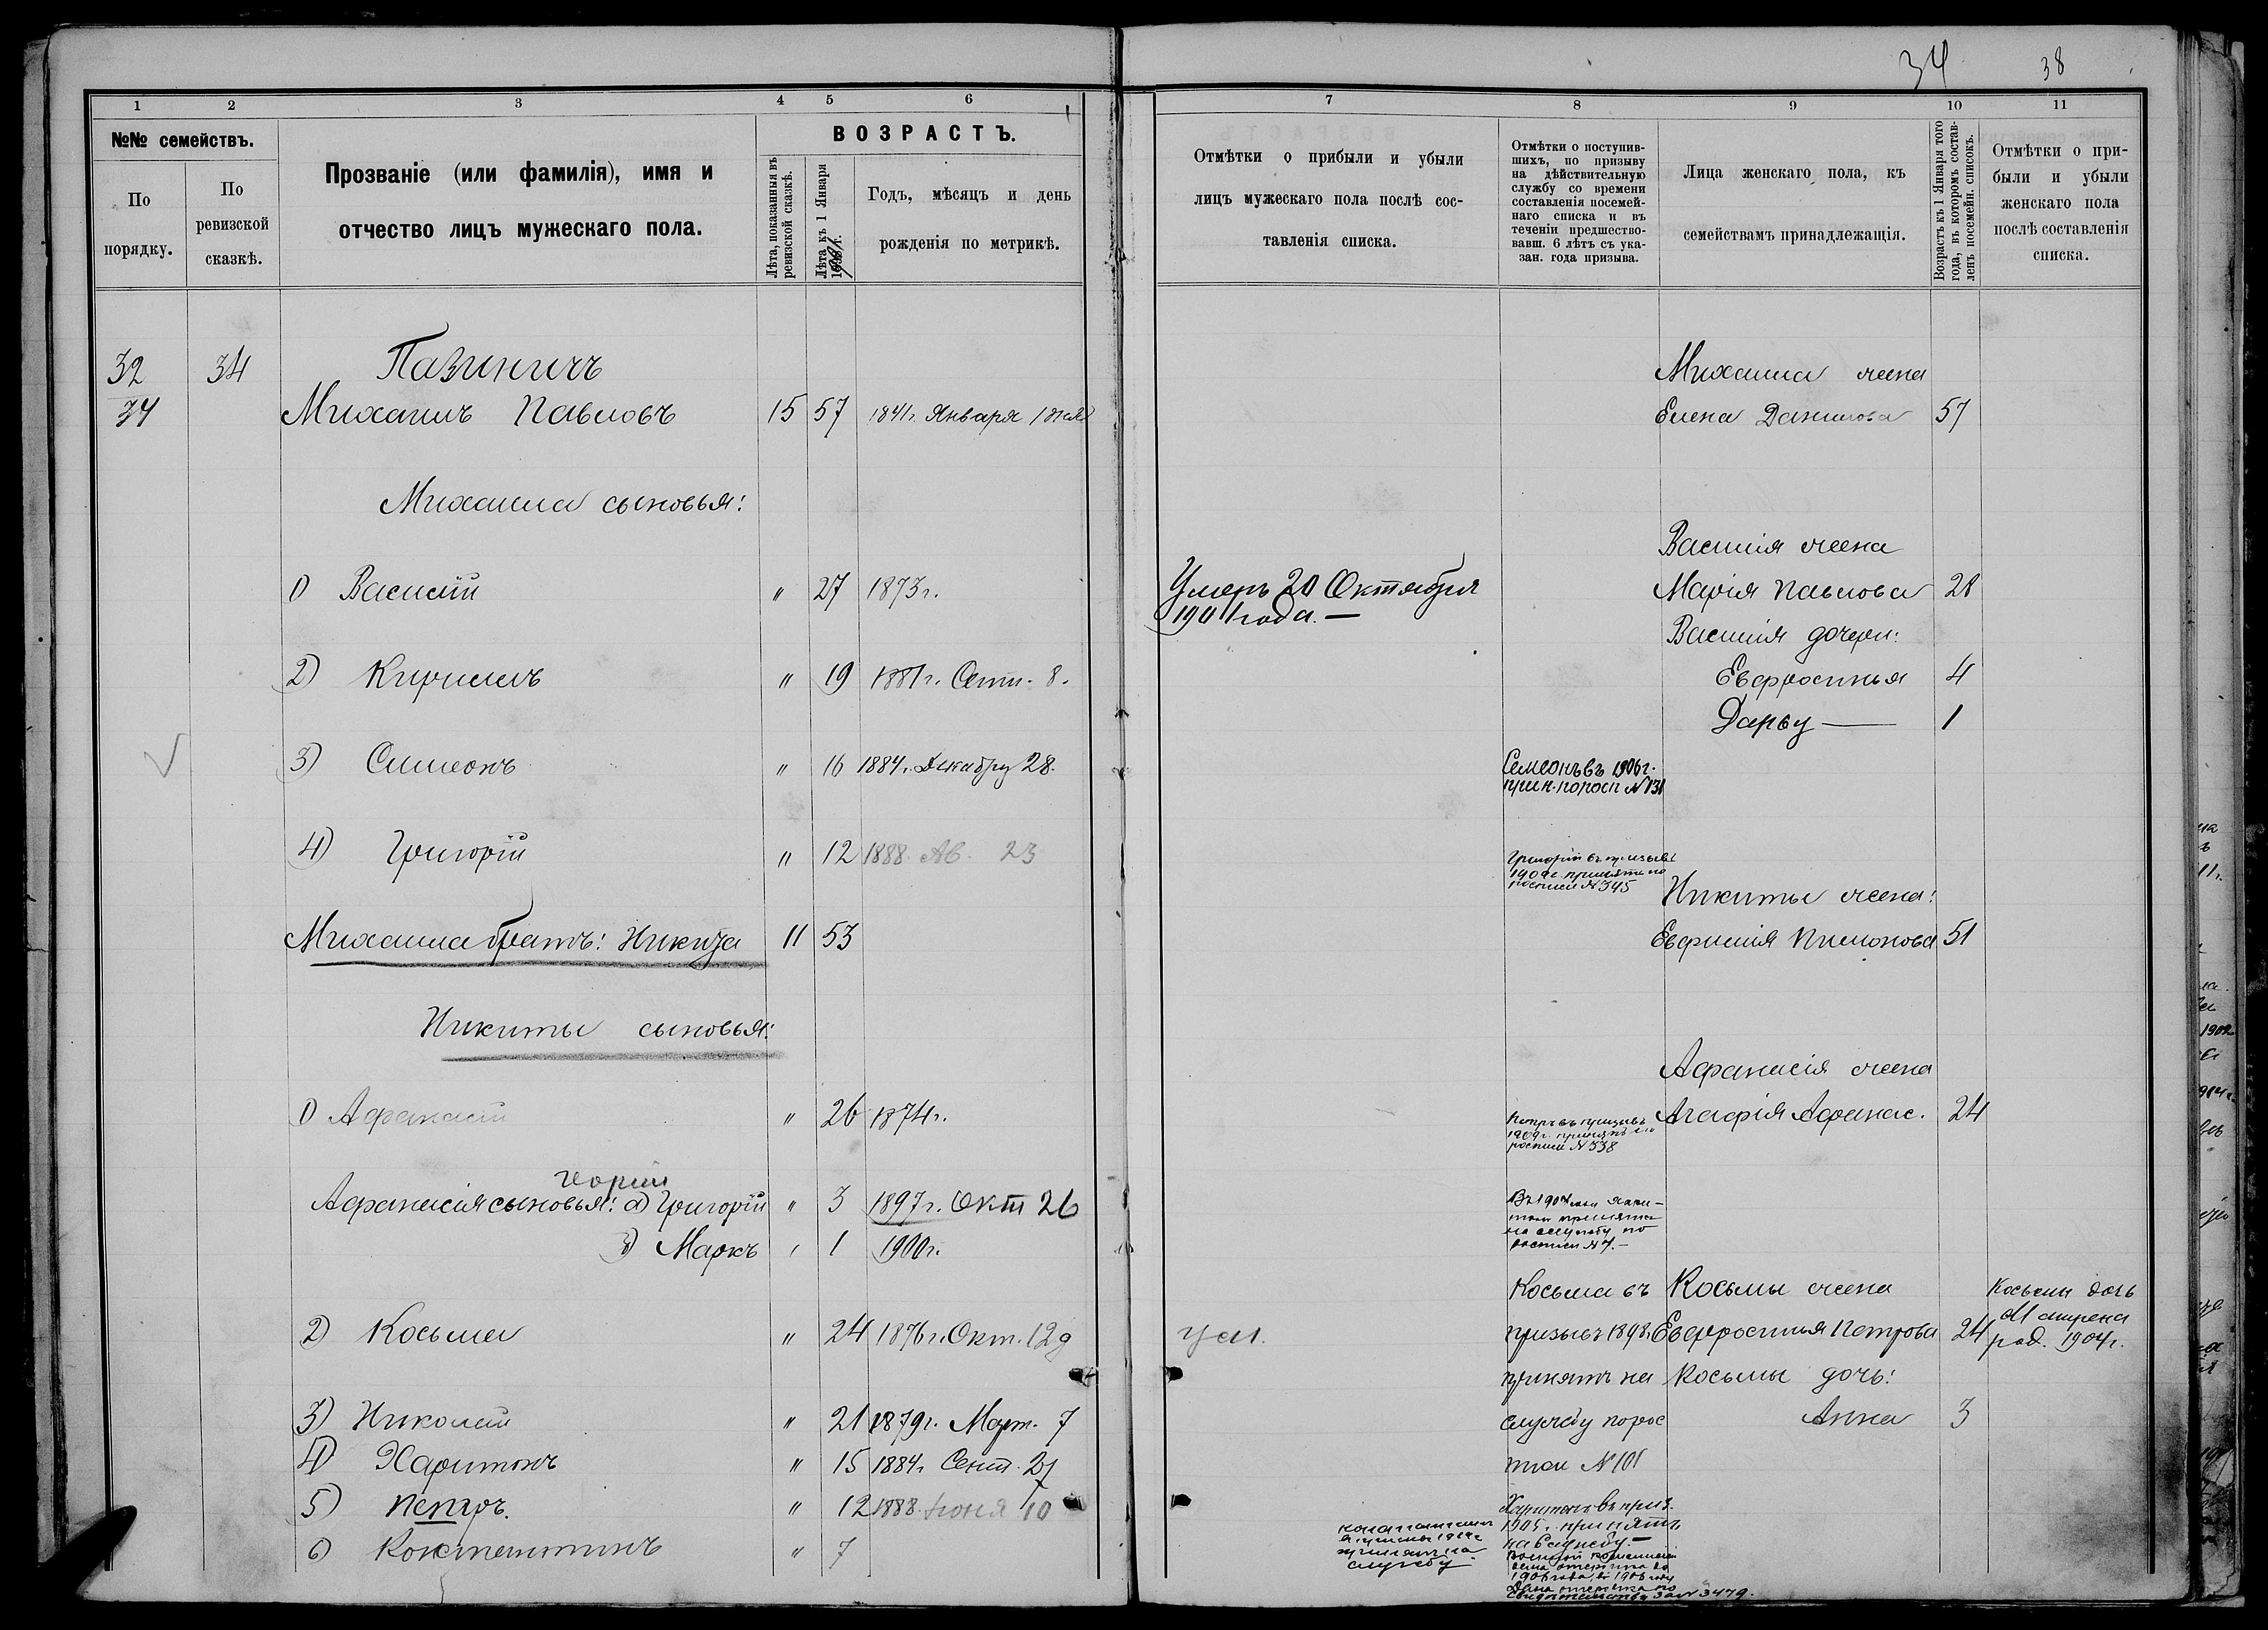 34 38
1 2 3 4 5 6
№№ семействъ.
По порядку.
По ревизской сказкѣ.
Прозваніе (или фамилія), имя и
отчество лицъ мужескаго пола.
ВОЗРАСТЪ.
Лѣта, показанныя въ ревизской сказкѣ.
Лѣта къ 1 Января
Годъ, мѣсяцъ и день
рожденія по метрикѣ.
32 34 Пазиничъ
34 Михаилъ Павловъ 15 57 1841г. Января
Михаила сыновья:
1) Василій " 27 1873г.
2) Кириллъ " 19 1881г. Сент. 8.
3) Симеонъ " 16 1884г. Декабру 28.
4) Григорій " 12 1888. Ав. 23
Михаила братъ: Никита 11 53
Никиты сыновья:
1) Афанасій " 26 1874г.
Афанасія сыновья: а) Григорій " 3 1897г. Окт 26
б) Маркъ " 1 1900г.
2) Косьма " 24 1876г. Окт. 12
3) Николай " 21 1879г. Март. 7
4) Харитонъ " 15 1884г. Сент. 27
5) Петръ. " 12 1888 Іюня 10
6) Константинъ " 7
7 8 9 10 11
Отмѣтки о прибыли и убыли
лицъ мужескаго пола послѣ сос-
тавленія списка.
Отмѣтки о поступив-
шихъ, по призыву
на дѣйствительную
службу со времени
составленія посемей-
наго списка и въ
теченіи предшество-
вавш. 6 лѣтъ съ ука-
зан. года призыва.
Лица женскаго пола, къ
семействамъ принадлежащія.
Возрастъ къ 1 Января того
года, въ которомъ состав-
ленъ посемейн. списокъ.
Отмѣтки о при-
были и убыли
женскаго пола
послѣ составленія
списка.
Михаила жена
Елена Данилова 57
Василія жена
Умеръ 20 Октября Марія Павлова 28
1901 года. —
Василія дочери:
Евфросинья 4
Дарья — 1
Семеонъ въ 1906г.
прин. по росп №131
Григорій въ призывѣ
1909г. принятъ по
росписи №345
Никиты жена:
Евфимія Пимонова 51
Афанасія жена
Агафія Афанас. 24
Петръ въ призывъ
1909г. принятъ по
росписи №338
принятъ
на службу по
росписи №7. —
Косьма въ Косьмы жена Косьмы дочь
призывъ 1898г. Евфросинья Петрова 24 Матрена
род. 1904г.
принятъ на Косьмы дочь:
службу порос Анна 3
писи №101
Харитонъ въ приз.
1905г. принятъ
на службу. —
Константинъ
принятъ на
службу
1906 года, въ 1906 году
Дана отсрочка по
свидѣтельству за № 3479.